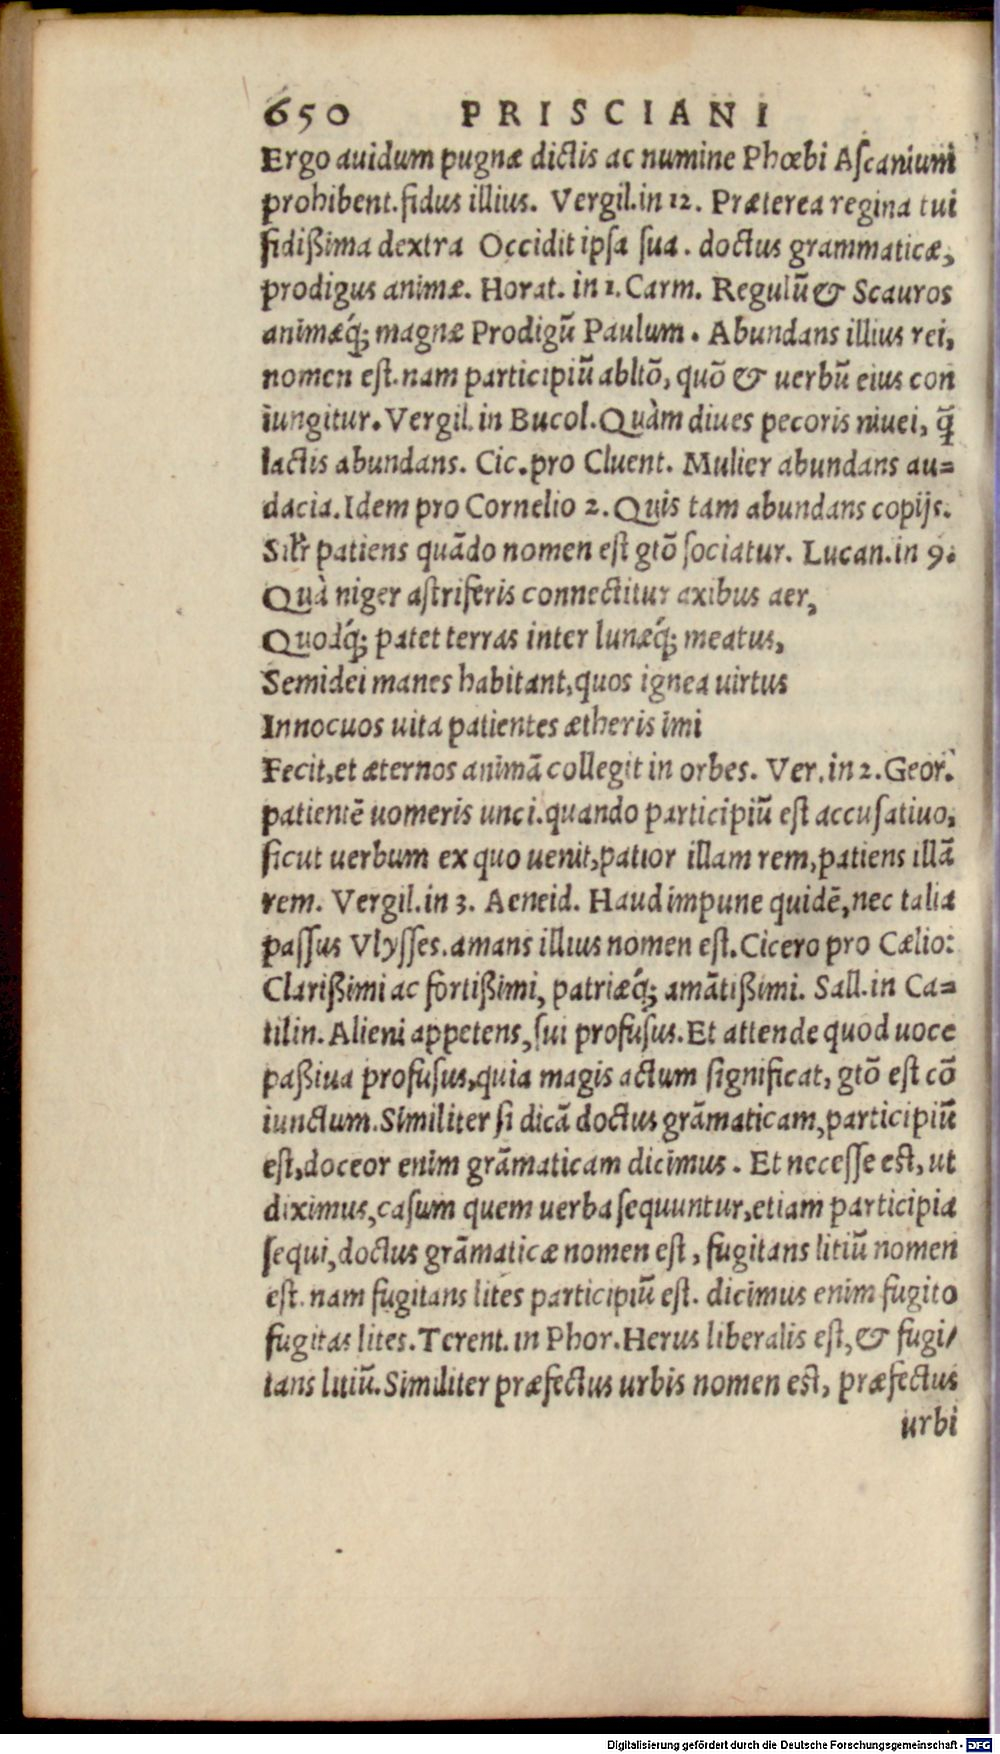 650 PRISCIANI
Ergo auidum pugnæ dictis ac numine Phœbi Aſcanium
prohibent. fidus illius. Vergil. in 12. Præterea regina tui
fidißima dextra Occidit ipſa ſua. doctus grammaticæ,
prodigus animæ. Horat. in 1. Carm. Regulũ & Scauros
animæq́; magnæ Prodigũ Paulum. Abundans illius rei,
nomen eſt. nam participiũ abltõ, quõ & uerbũ eius con
iungitur. Vergil. in Bucol. Quàm diues pecoris niuei, q̃
lactis abundans. Cic. pro Cluent. Mulier abundans au=
dacia. Idem pro Cornelio 2. Quis tam abundans copijs.
Silr̃ patiens quãdo nomen eſt gtõ ſociatur. Lucan. in 9.
Quà niger aſtriferis connectitur axibus aer,
Quodq́; patet terras inter lunæq́; meatus,
Semidei manes habitant, quos ignea uirtus
Innocuos uita patientes ætheris imi
Fecit, et æternos animã collegit in orbes. Ver. in 2. Geor.
patientẽ uomeris unci. quando participiũ eſt accuſatiuo,
ſicut uerbum ex quo uenit, patior illam rem, patiens illã
rem. Vergil. in 3. Aeneid. Haud impune quidẽ, nec talia
paſſus Vlyſſes. amans illius nomen eſt. Cicero pro Cælio:
Clarißimi ac fortißimi, patriæq́; amãtißimi. Sall. in Ca=
tilin. Alieni appetens, ſui profuſus. Et attende quod uoce
paßiua profuſus, quia magis actum ſignificat, gtõ eſt cõ
iunctum. Similiter ſi dicã doctus grãmaticam, participiũ
eſt, doceor enim grãmaticam dicimus. Et neceſſe eſt, ut
diximus, caſum quem uerba ſequuntur, etiam participia
ſequi, doctus grãmaticæ nomen eſt, fugitans litiũ nomen
eſt. nam fugitans lites participiũ eſt. dicimus enim fugito
fugitas lites. Terent. in Phor. Herus liberalis eſt, & fugi/
tans litiũ. Similiter præfectus urbis nomen eſt, præfectus
urbi
Digitalisierung gefördert durch die Deutsche Forschungsgemeinschaft - DFG